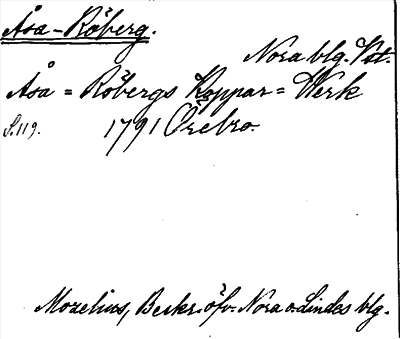 Åsa-Röberg.
Nora blg. Vst.
Åsa = Röbergs Koppar = Werk
S. 119. 1791 Örebro.
Mozelius, Beskr. öfv. Nora o. Lindes blg.